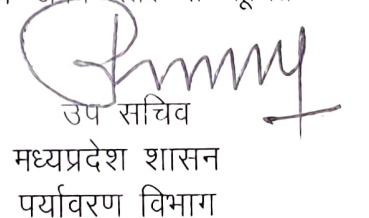 उप सचिव
मध्यप्रदेश शासन
पर्यावरण विभाग